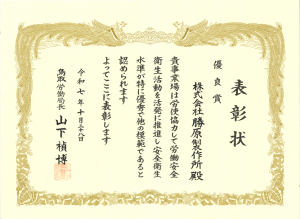 表彰状
優良賞
株式会社勝原製作所殿
貴事業場は労使協力して労働安全
衛生活動を活発に推進し安全衛生
水準が特に優秀で他の模範であると
認められます
よってここに表彰します
令和七年十月二十八日
鳥取労働局長
山下禎博